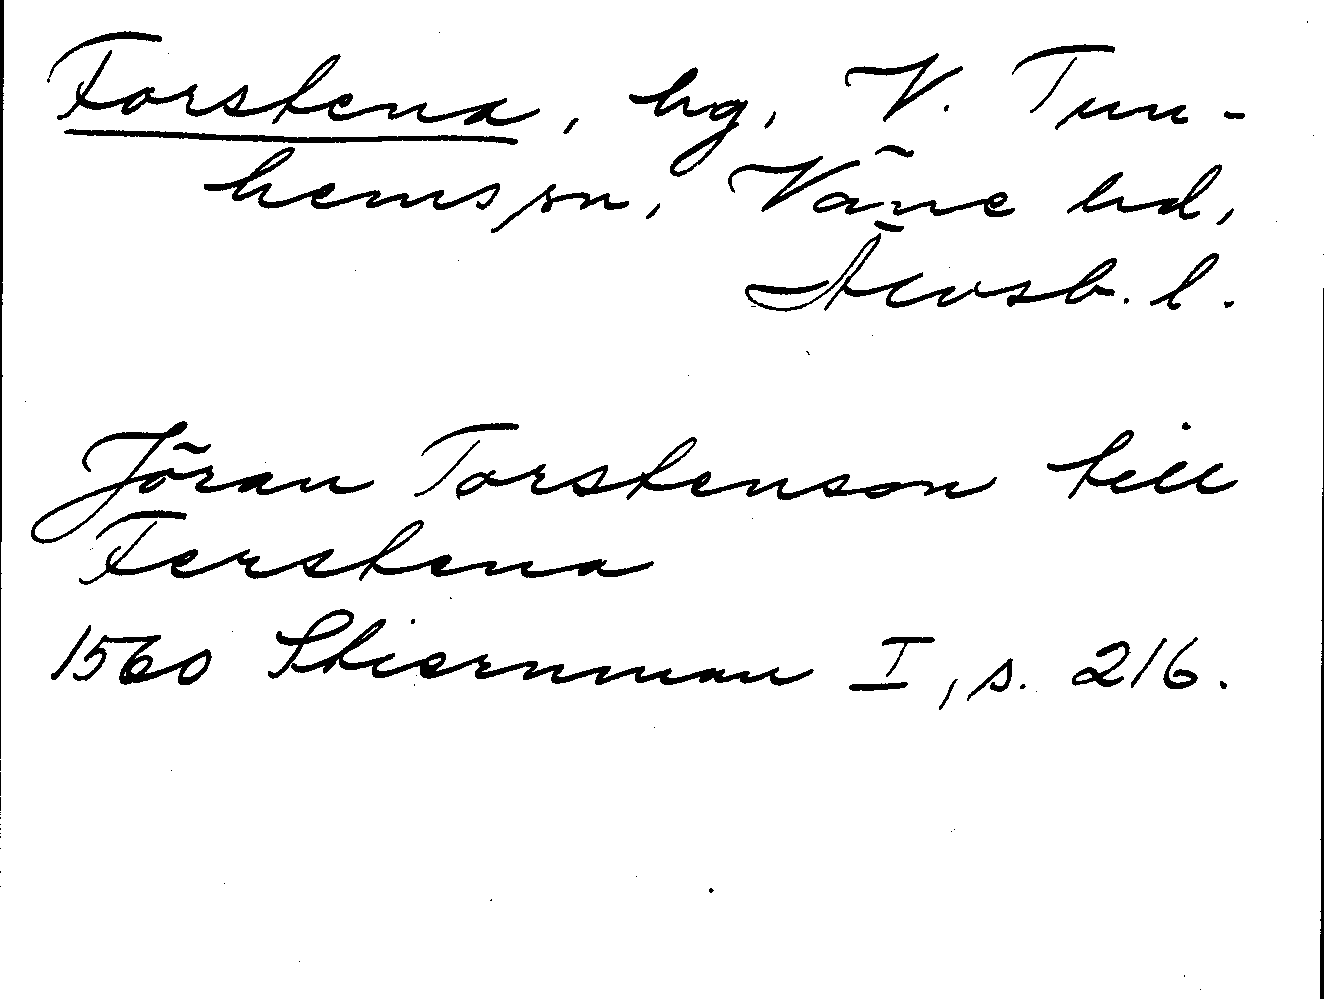 Forstena, hg, V. Tun-
hems sn, Väne hd,
Älvsb. l.
Jöran Torstenson till
Ferstena
1560 Stiernman I, s. 216.